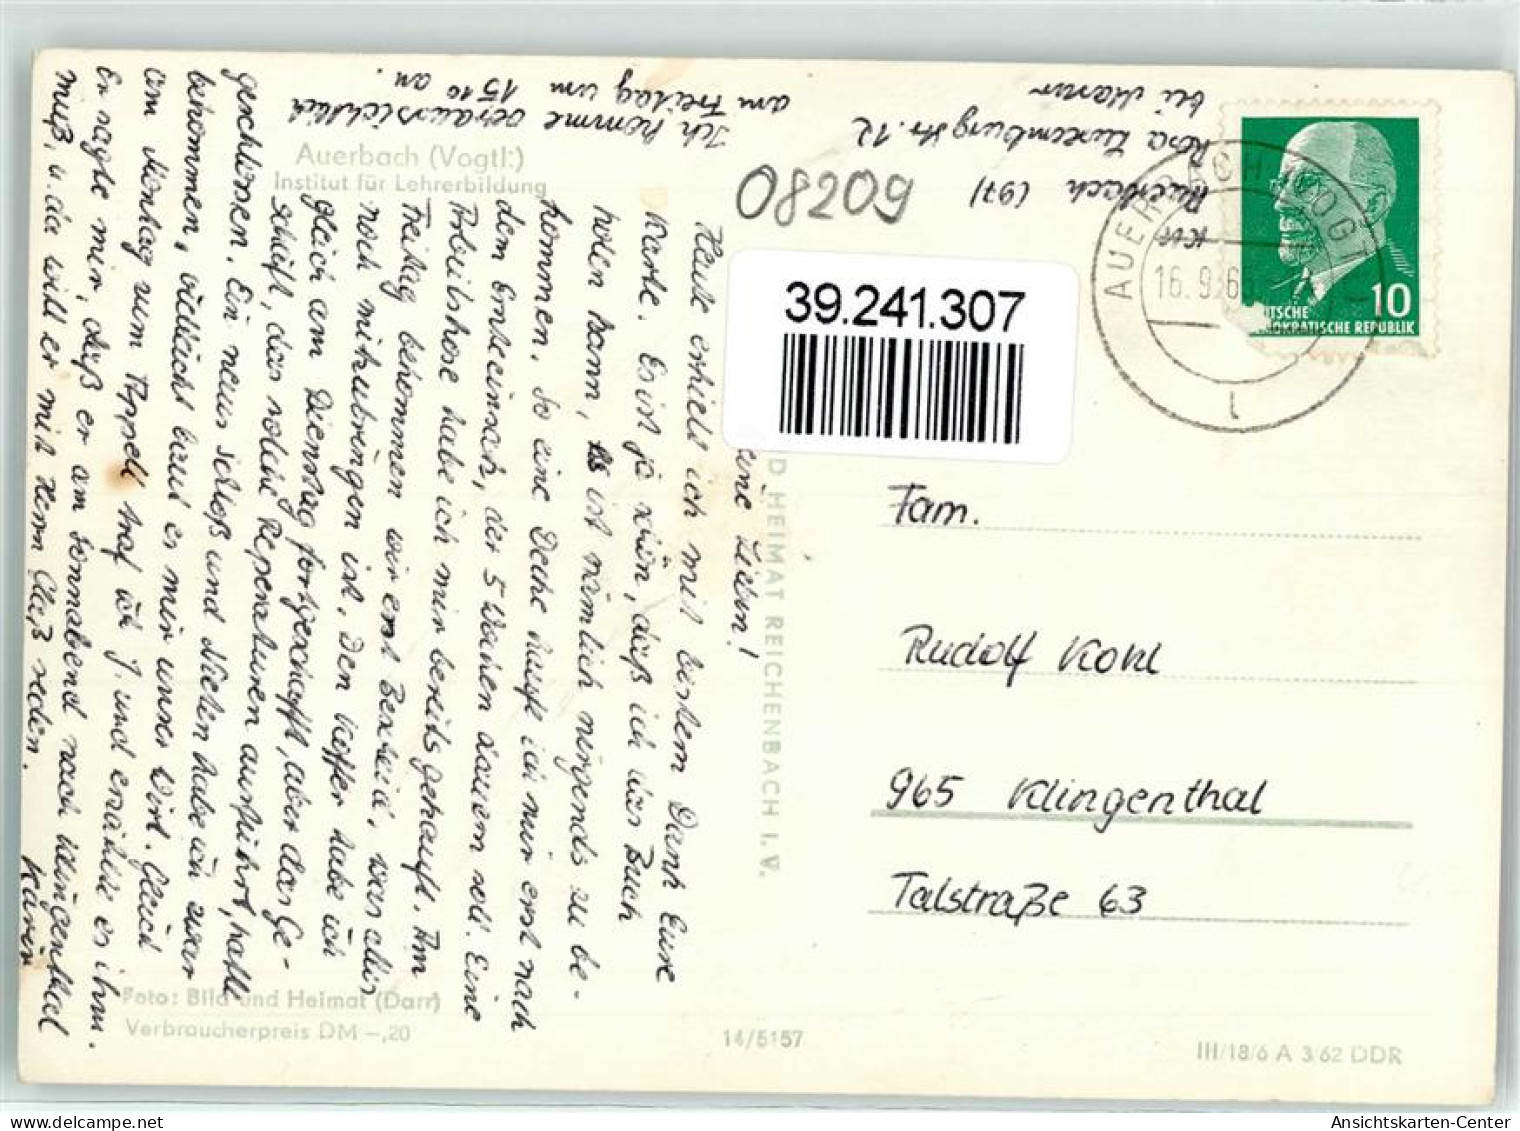 Auerbach (Vogtl.)
Institut für Lehrerbildung
08209
39.241.307
AUERBACH VOGTL
16. 9. 65
10
DEUTSCHE
DEMOKRATISCHE REPUBLIK
Auerbach (97)
Rosa Luxemburgstr. 12
bei
Fam.
Rudolf Kohl
965 Klingenthal
Talstraße 63
D HEIMAT REICHENBACH I. V.
eine Lieben!
Heute erhielt ich mit bestem Dank Eure
Karte. Es ist ja schön, daß ich das Buch
holen kann, es ist nämlich nirgends zu be-
kommen. So eine Decke kaufe ich mir erst nach
dem Ernteeinsatz, der 5 Wochen dauern soll. Eine
Arbeitshose habe ich mir bereits gekauft. Am
Freitag bekommen wir erst Bescheid, was alles
noch mitzubringen ist. Den Koffer habe ich
gleich am Dienstag fortgeschafft, aber das Ge-
schäft, das solche Reperaturen ausführt, hatte
geschlossen. Ein neues Schloß und Nieten habe ich zwar
bekommen, vielleicht baut es mir unser Wirt. Gleich
am Montag zum Appell traf ich J. und erzählte es ihm.
Er sagte mir, daß er am Sonnabend nach Klingenthal
muß, u. da will er mit Herrn Claß reden.
Karin
Ich komme voraussichtlich
am Freitag um 15¹⁰ an.
Foto: Bild und Heimat (Darr)
Verbraucherpreis DM –,20
14/5157
III/18/6 A 3/62 DDR
Ansichtskarten-Center